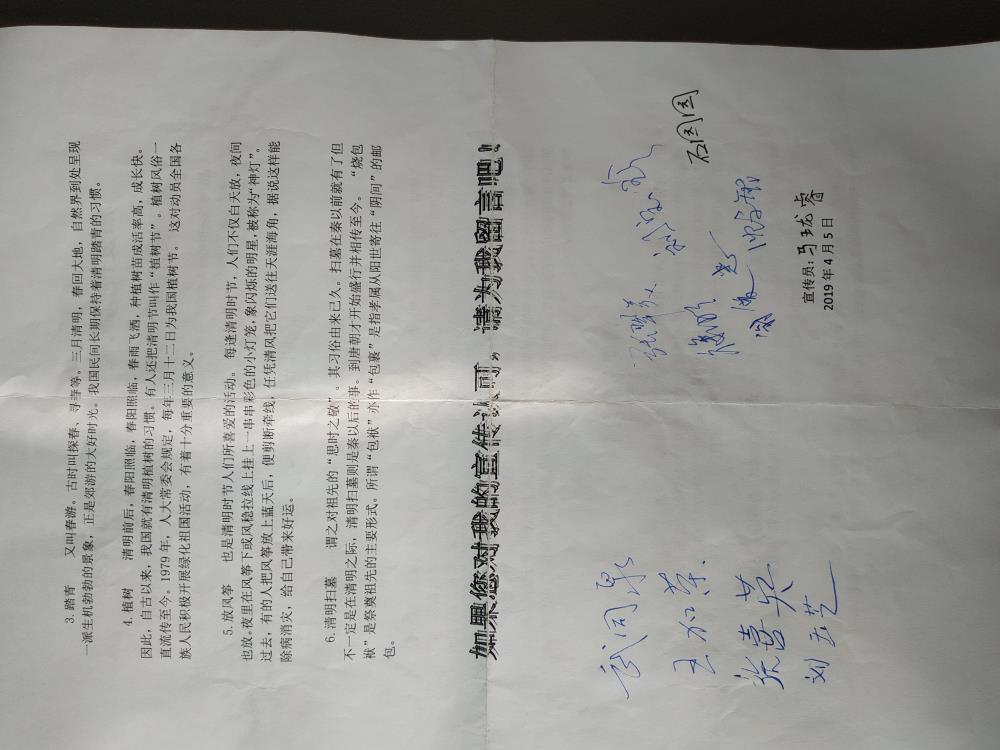 3. 踏青 又叫春游。古时叫探春、寻芳等。三月清明，春回大地，自然界到处呈现
一派生机勃勃的景象，正是郊游的大好时光。我国民间长期保持着清明踏青的习惯。
4. 植树 清明前后，春阳照临，春阳照临，春雨飞洒，种植树苗成活率高，成长快。
因此，自古以来，我国就有清明植树的习惯。有人还把清明节叫作"植树节"。植树风俗一
直流传至今。1979 年，人大常委会规定，每年三月十二日为我国植树节。 这对动员全国各
族人民积极开展绿化祖国活动，有着十分重要的意义。
5. 放风筝 也是清明时节人们所喜爱的活动。 每逢清明时节，人们不仅白天放，夜间
也放。夜里在风筝下或风稳拉线上挂上一串串彩色的小灯笼，象闪烁的明星，被称为"神灯"。
过去，有的人把风筝放上蓝天后，便剪断牵线，任凭清风把它们送往天涯海角，据说这样能
除病消灾，给自己带来好运。
6. 清明扫墓 谓之对祖先的"思时之敬"。其习俗由来已久。扫墓在秦以前就有了但
不一定是在清明之际，清明扫墓则是秦以后的事。到唐朝才开始盛行并相传至今。 "烧包
袱"是祭奠祖先的主要形式。所谓"包袱"亦作"包裹"是指孝属从阳世寄往"阴间"的邮
包。
如果您对我的宣传认可，请为我留言吧！
武同
王加荣
张喜英
刘玉芝
石国国
宣传员：马珑睿
2019 年 4 月 5 日